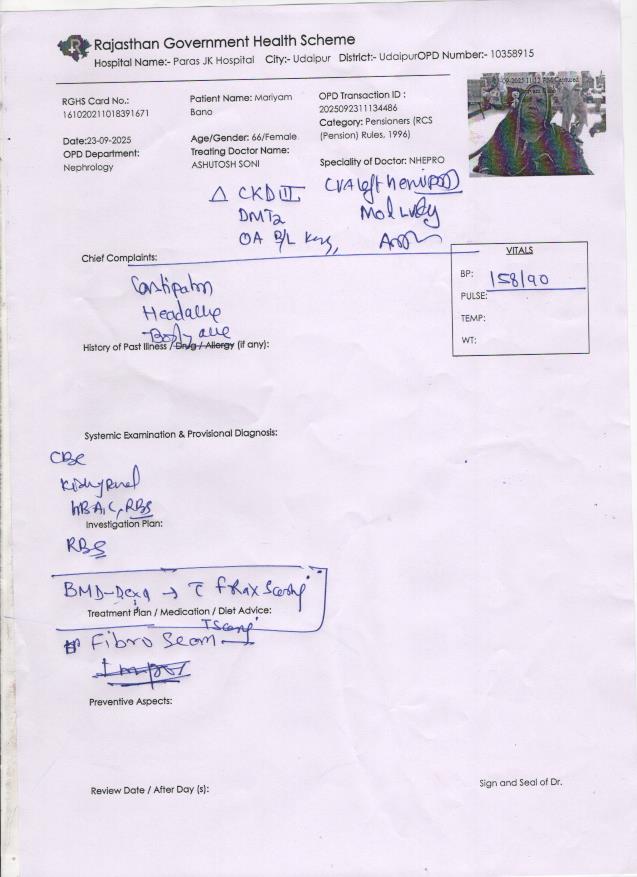 Rajasthan Government Health Scheme
Hospital Name:- Paras JK Hospital City:- Udaipur District:- UdaipurOPD Number:- 10358915
RGHS Card No.:
161020211018391671
Date:23-09-2025
OPD Department:
Nephrology
Patient Name: Mariyam
Bano
Age/Gender: 66/Female
Treating Doctor Name:
ASHUTOSH SONI
OPD Transaction ID :
2025092311134486
Category: Pensioners (RCS
(Pension) Rules, 1996)
Speciality of Doctor: NHEPRO
Δ CKD III
DMT2
OA B/L
CVA left
Chief Complaints:
Constipation
Headache
Body ache
VITALS
BP: 158/90
PULSE:
TEMP:
WT:
History of Past Illness / Drug / Allergy (if any):
Systemic Examination & Provisional Diagnosis:
CBC
HBA1C, RBS
Investigation Plan:
RBS
BMD-Dexa →
Treatment Plan / Medication / Diet Advice:
Fibro Scan
Preventive Aspects:
Review Date / After Day (s):
Sign and Seal of Dr.